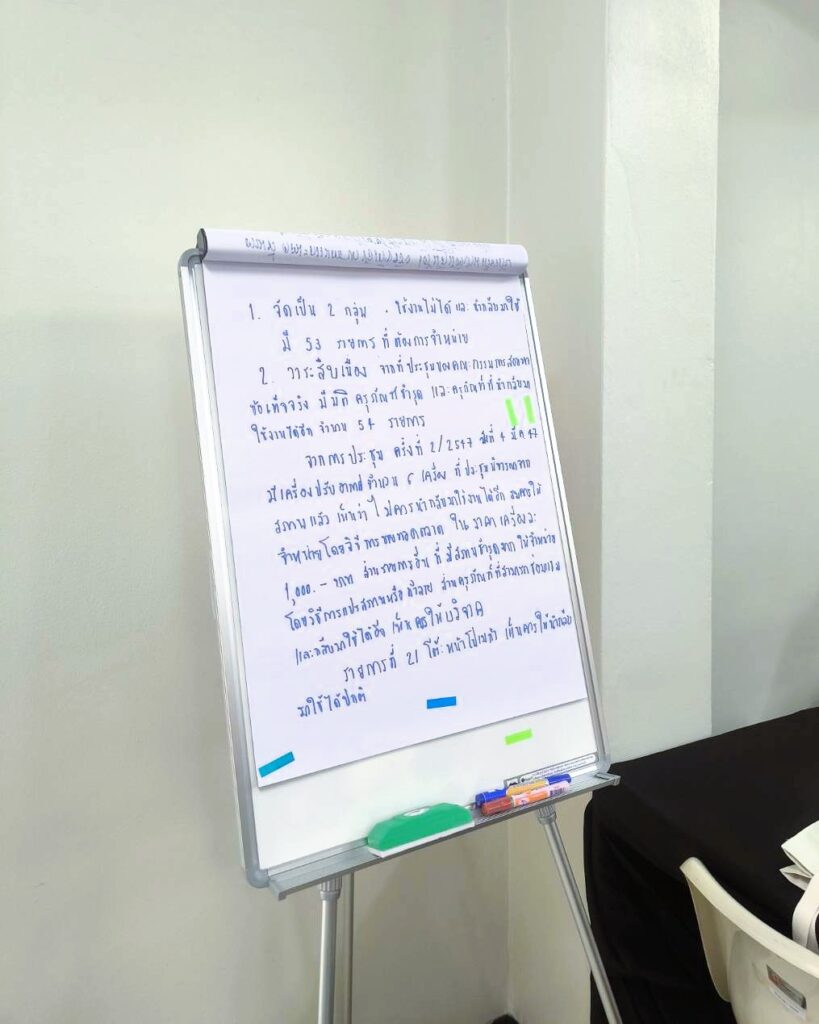 1. จัดเป็น 2 กลุ่ม . ใช้งานไม่ได้ และ นำกลับมาใช้
มี 53 รายการ ที่ ต้องการจำหน่าย
2. วาระสืบเนื่อง จากที่ประชุมของคณะกรรมการสอบหา
ข้อเท็จจริง มีมติ ครุภัณฑ์ชำรุด และครุภัณฑ์ที่นำกลับมา
ใช้งานได้อีก จำนวน 54 รายการ
จากการประชุม ครั้งที่ 2/2547 วันที่ 4 มี.ค 47
มีเครื่องปรับอากาศ จำนวน 6 เครื่อง ที่ประชุม
สภาพแล้ว เห็นว่า ไม่ควรนำกลับมาใช้งานได้อีก สมควรให้
จำหน่ายโดยวิธีการขายทอดตลาด ในราคาเครื่องละ
1,000.- บาท ส่วนรายการอื่น ที่มีสภาพชำรุดมาก ให้จำหน่าย
โดยวิธีการแปรสภาพหรือทำลาย ส่วนครุภัณฑ์ที่สามารถซ่อมแซม
และกลับมาใช้ได้อีก เห็นควรให้บริจาค
รายการที่ 21 โต๊ะหมู่ เห็นควรให้นำกลับ
มาใช้ได้ปกติ